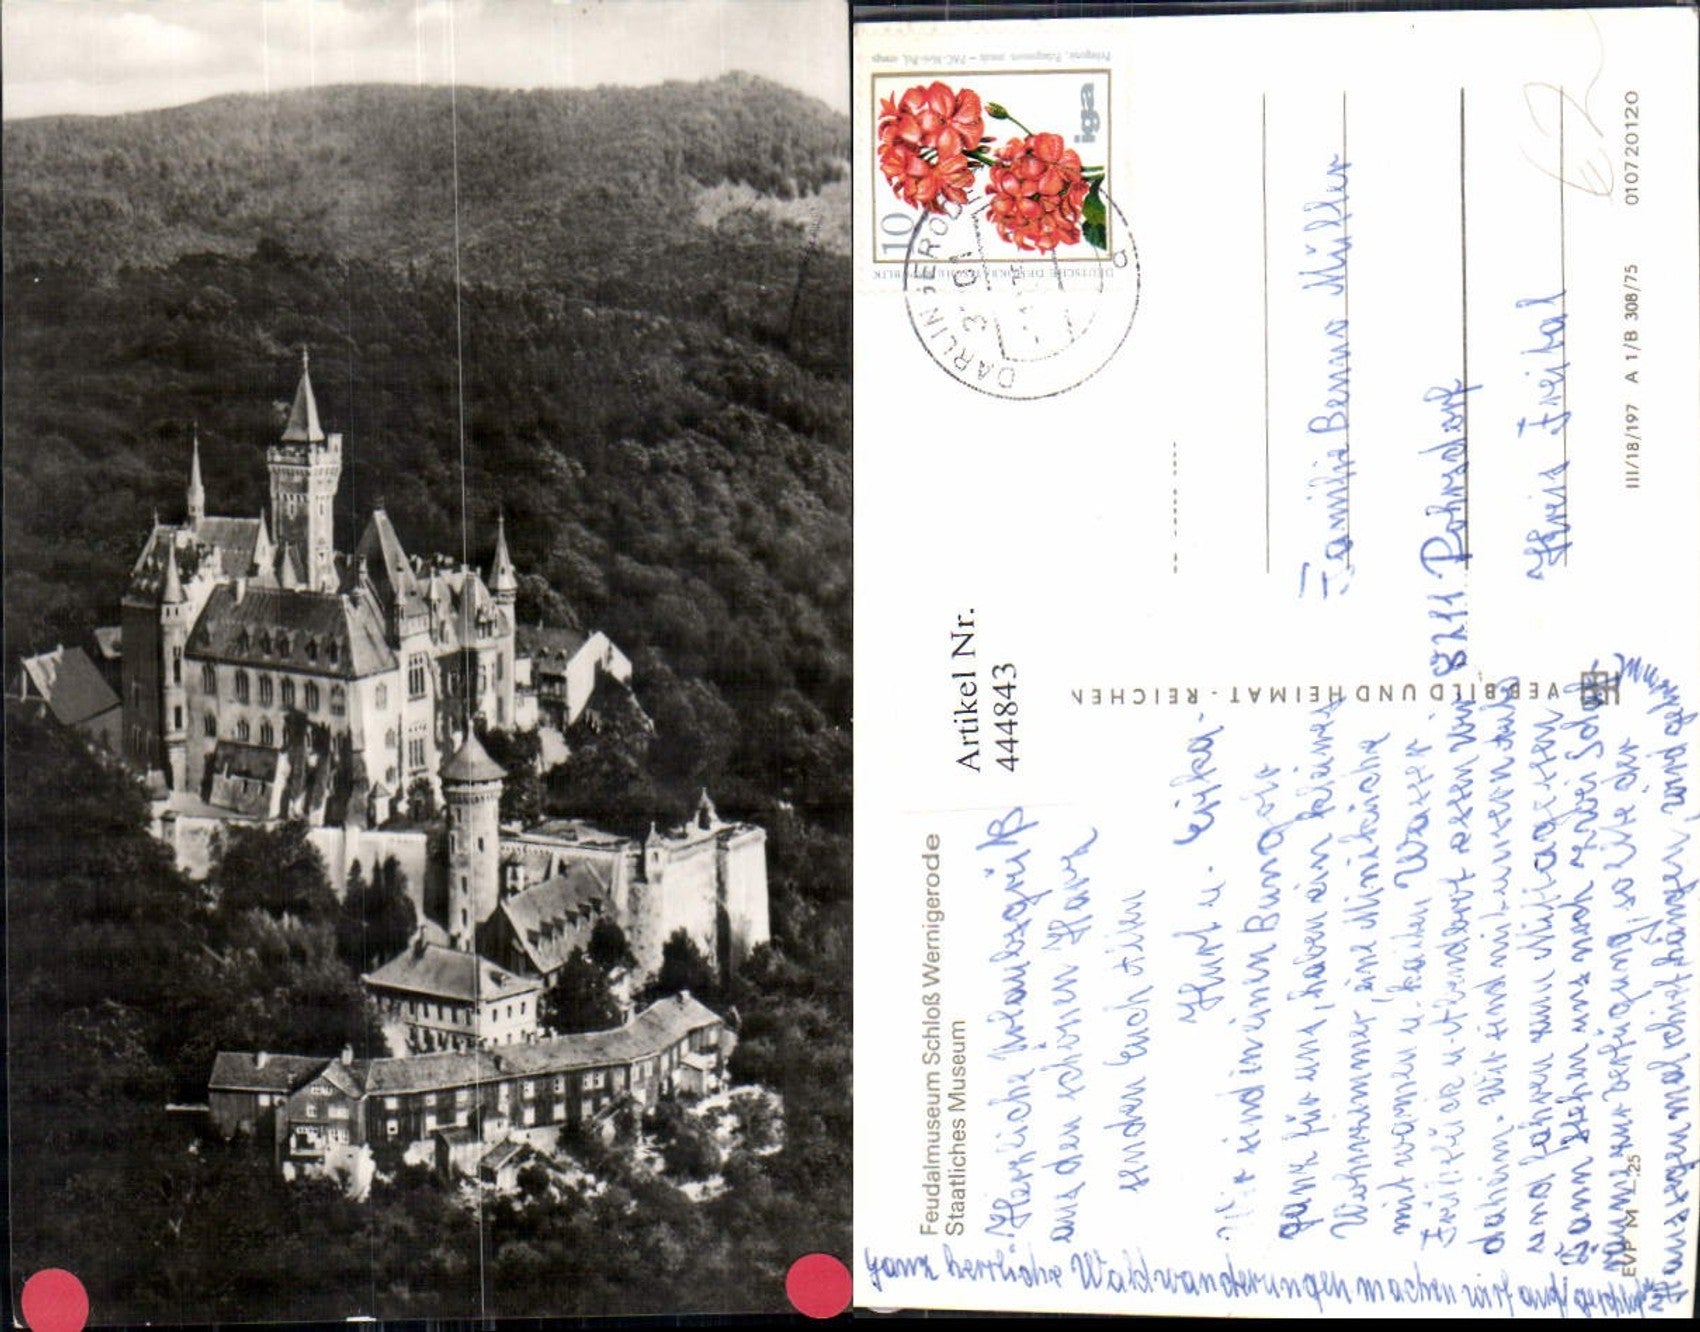 Pelargonie, Pelargonium zonale – PAC-Meri-Pel, orange
iga
10
DEUTSCHE DEMOKRATISCHE REPUBLIK
DARLINGERODE
3701
a
Artikel Nr.
444843
Feudalmuseum Schloß Wernigerode
Staatliches Museum
Herzliche Urlaubsgrüße
aus dem schönen Harz
senden Euch allen
Kurt u. Erika.
Wir sind in einem Bungalow
ganz für uns, haben ein kleines
Wohnzimmer, eine Miniküche
mit warmen u. kalten Wasser.
Frühstück u. Abendbrot essen wir
daheim. Wir sind mit unserem Auto
und fahren zum Mittagessen.
Dann stehen uns noch zwei Schlaf-
räume zur Verfügung, so wie der
ganz herrliche Waldwanderungen machen wir
VEB BILD UND HEIMAT · REICHEN
Familie Benno Müller
8211 Pohrsdorf
Kreis Freital
€2
EVP M –,25
III/18/197 A 1/B 308/75 01 07 20 120